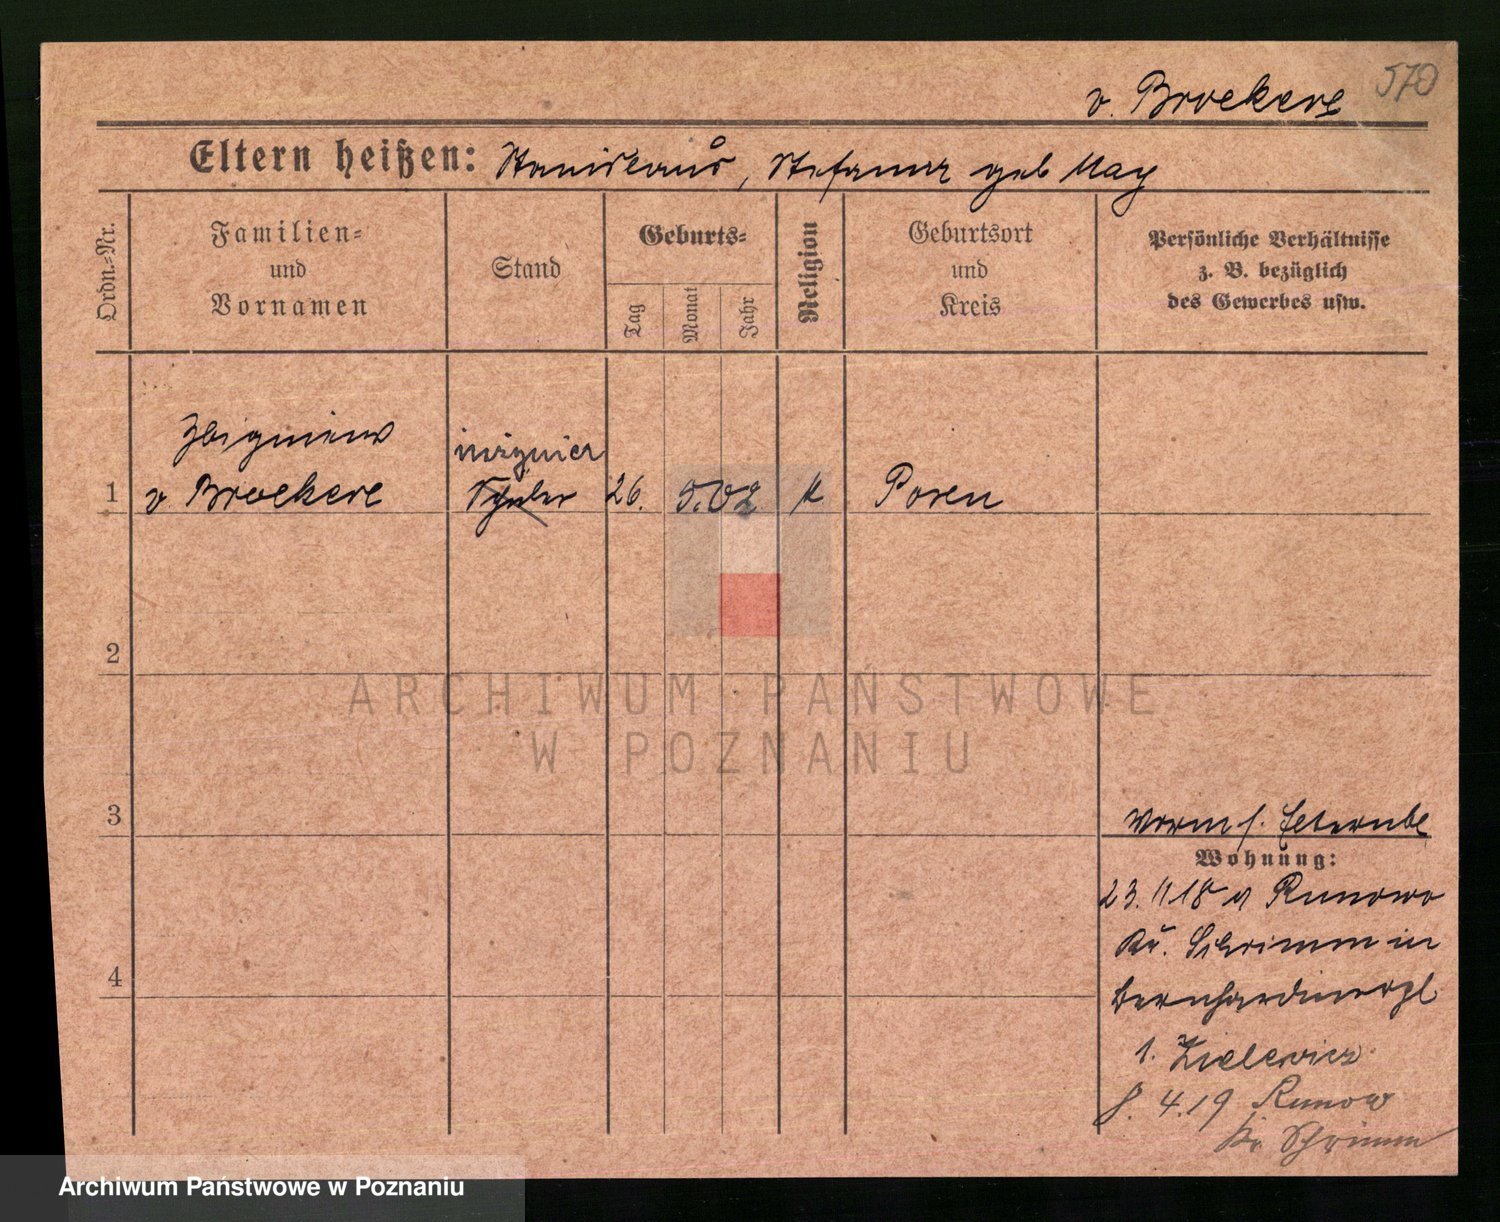 570
v. Broekere
Eltern heißen: Stanislaus, Stefania geb May
Ordn.-Nr.
Familien-
und
Vornamen
Stand
Geburts-
Tag
Monat
Jahr
Religion
Geburtsort
und
Kreis
Persönliche Verhältnisse
z. B. bezüglich
des Gewerbes usw.
Zbigniew
inżynier
1 v. Broekere Schüler 26. 5. 02 k Posen
2
ARCHIWUM PAŃSTWOWE
W POZNANIU
3
Wohnung:
23. 11 18 v Runowo
Kr. Schrimm in
4
Bernhardinerpl
1. Zielewicz
8. 4. 19 Runowo
Kr Schrimm
Archiwum Państwowe w Poznaniu